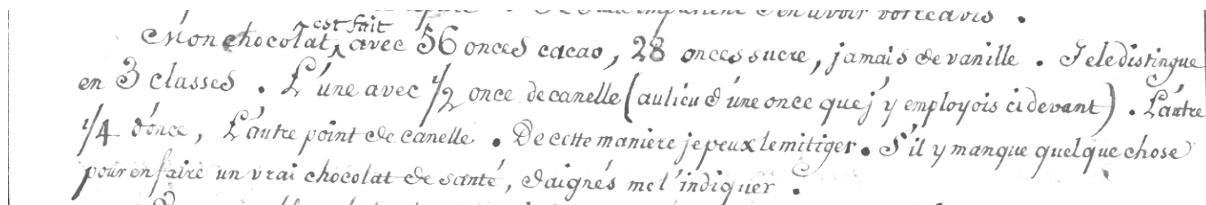 d'en avoir vos re avis .
Mon chocolat est fait avec 56 onces cacao, 28 onces sucre, jamais de vanille . Je le distingue
en 3 classes . L'une avec 1/2 once de canelle (au lieu d'une once que j'y employois ci devant) . L'autre
1/4 d'once, L'autre point de canelle . De cette maniere je peux le mitiger . S'il y manque quelque chose
pour en faire un vrai chocolat de santé, daignés me l'indiquer .